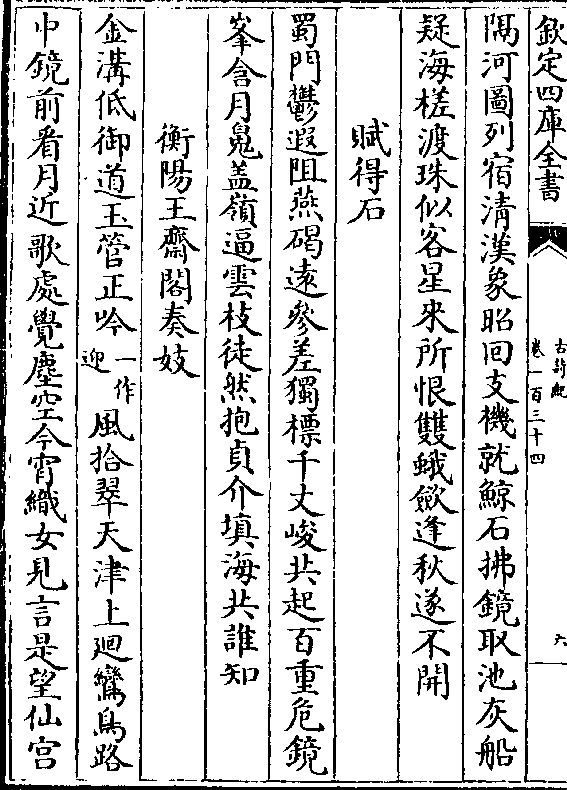 欽定四庫全書
古詩紀
卷一百三十四
六
隅河圖列宿清漢象昭回支機就鯨石拂鏡取池灰船
疑海槎渡珠似客星來所恨雙蛾斂逢秋遂不開
賦得石
蜀門鬱遐阻燕碣遠參差獨標千丈峻共起百重危鏡
峯含月鬼盖嶺逼雲枝徒然抱貞介填海共誰知
衡陽王齋閣奏妓
金溝低御道玉管正吟一作迎風拾翠天津上廻鸞鳥路
中鏡前看月近歌處覺塵空今宵織女見言是望仙宫